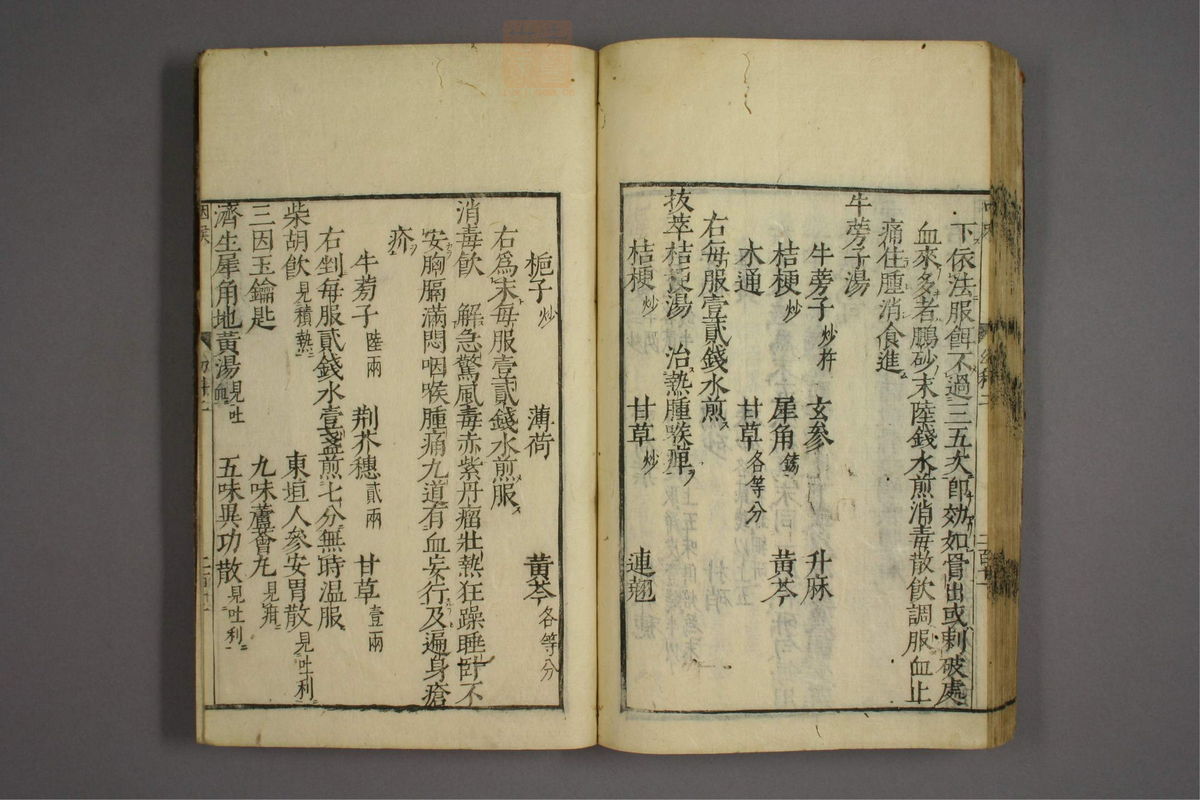 下依法服餌不過三五次即効如骨出或刺破處
血來多者鵬砂末陸錢水煎消毒散飲調服血止
痛住腫消食進
牛蒡子湯
牛蒡子炒杵 玄參 升麻
桔梗炒 犀角鎊 黃芩
木通 甘草各等分
右每服壹貳錢水煎
拔萃桔梗湯 治熱腫喉痺
桔梗炒 甘草炒 連翹
梔子炒 薄荷 黃芩各等分
右爲末每服壹貳錢水煎服
消毒飲 解急驚風毒赤紫丹瘤壯熱狂躁睡卧不
安胸膈滿悶咽喉腫痛九道有血妄行及遍身瘡
疥
牛蒡子陸兩 荆芥穗貳兩 甘草壹兩
右剉每服貳錢水壹盞煎七分無時温服
柴胡飲見積熱 東垣人參安胃散見吐利
三因玉鑰匙 九味蘆薈丸見疳
濟生犀角地黃湯見吐血 五味異功散見吐利